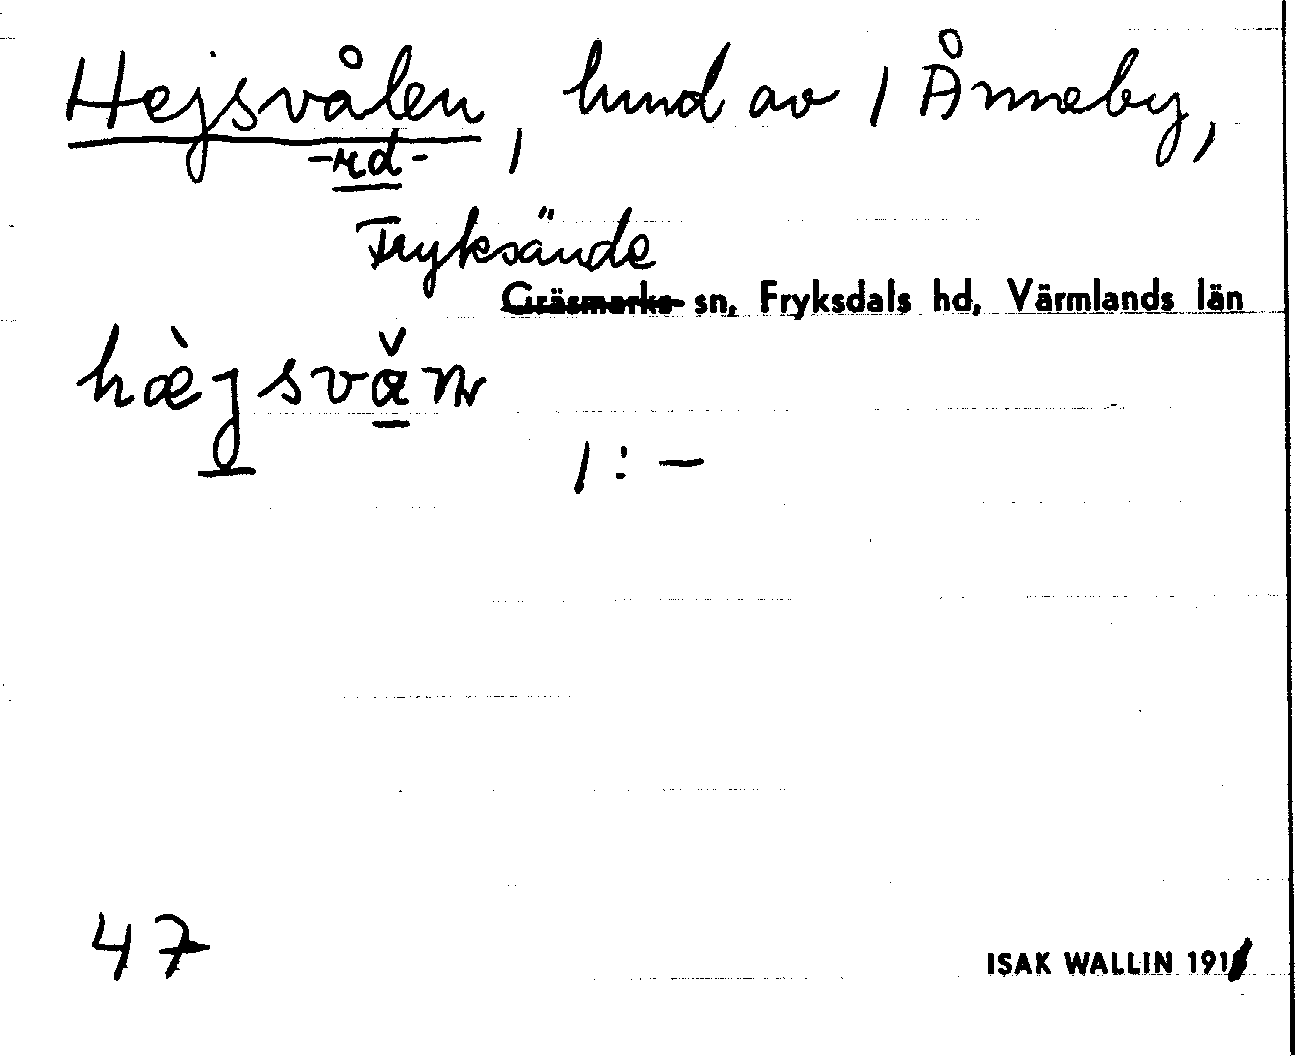 Hejsvålen, hemd av 1 Ånneby,
-rd-
Fryksände
Gräsmarks sn, Fryksdals hd, Värmlands län
1:-
47
ISAK WALLIN 191